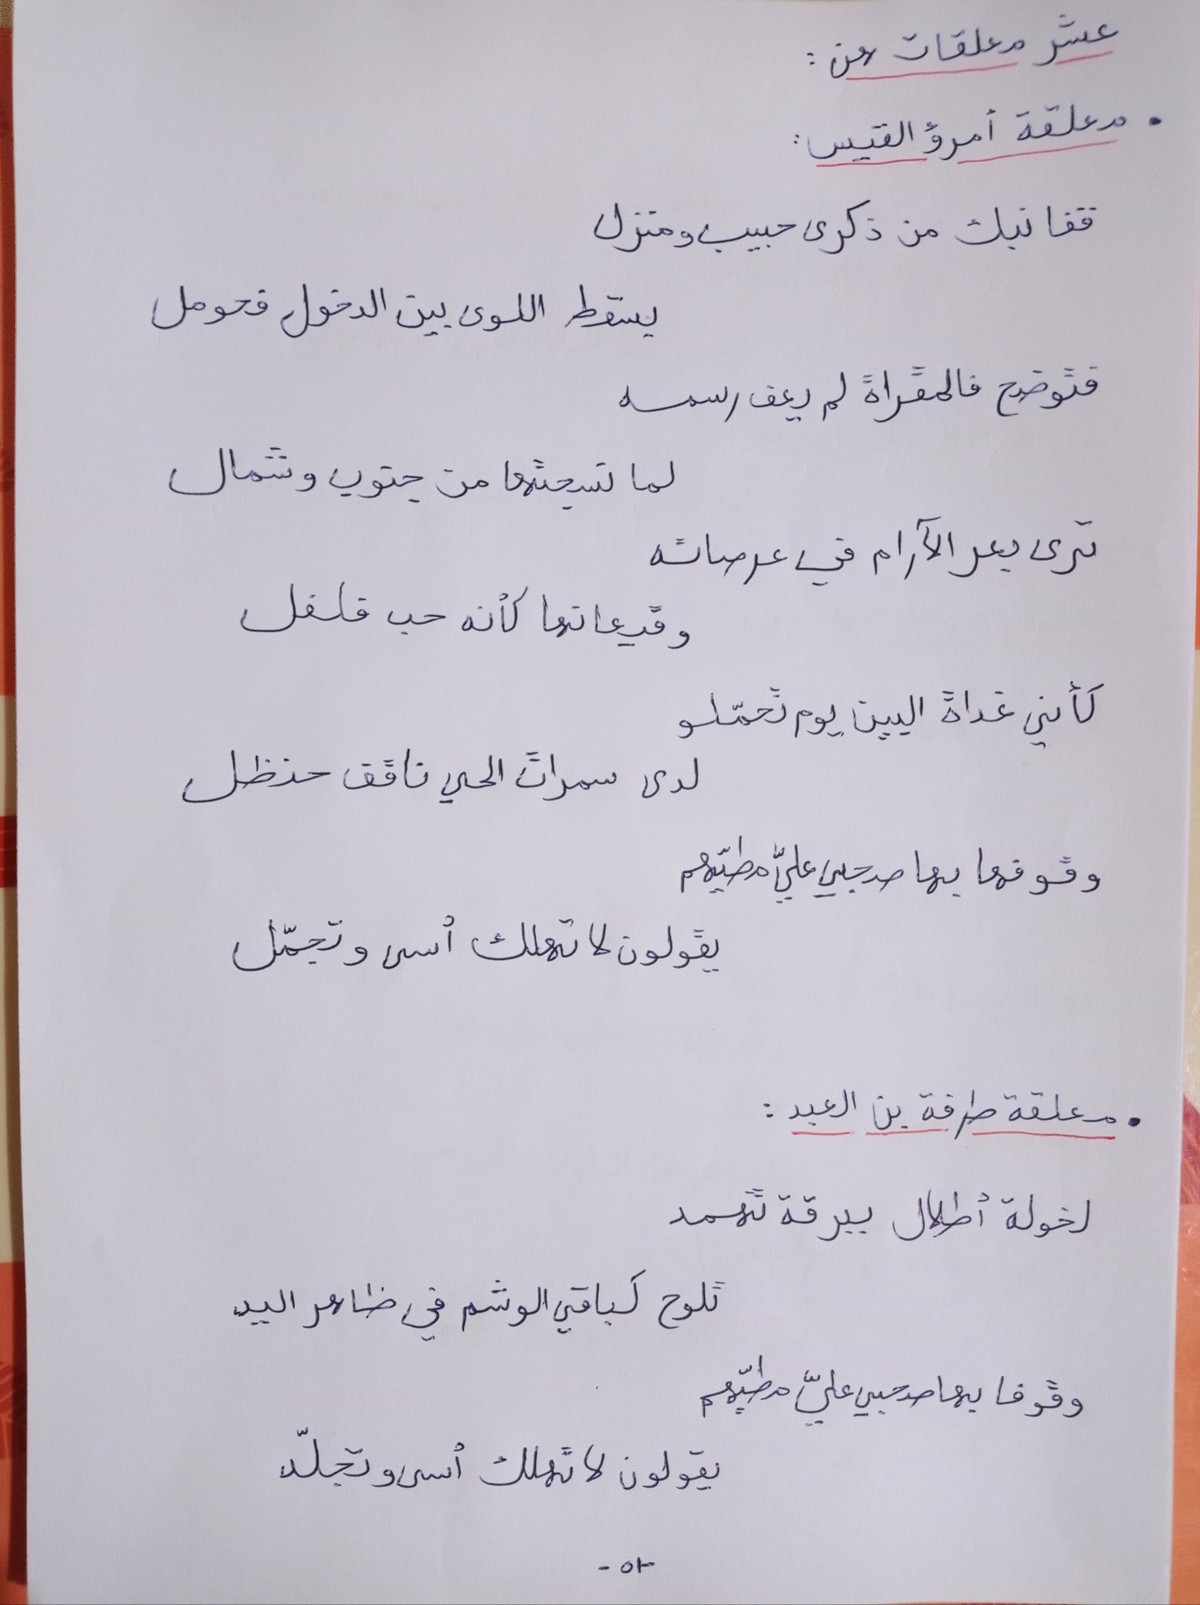 عشر معلقات هن :
• معلقة أمرؤ القيس :
قفا نبك من ذكرى حبيب ومنزل
بسقط اللوى بين الدخول فحومل
فتوضح فالمقراة لم يعف رسمه
لما نسجتها من جنوب وشمال
ترى بعر الآرام في عرصاته
وقيعانها كأنه حب فلفل
كأني غداة البين يوم تحمّلو
لدى سمرات الحي ناقف حنظل
وقوفها بها صحبي عليّ مطيّهم
يقولون لا تهلك أسى وتجمّل
• معلقة طرفة بن العبد :
لخولة أطلال ببرقة ثهمد
تلوح كباقي الوشم في ظاهر اليد
وقوفا بها صحبي عليّ مطيّهم
يقولون لا تهلك أسى وتجلّد